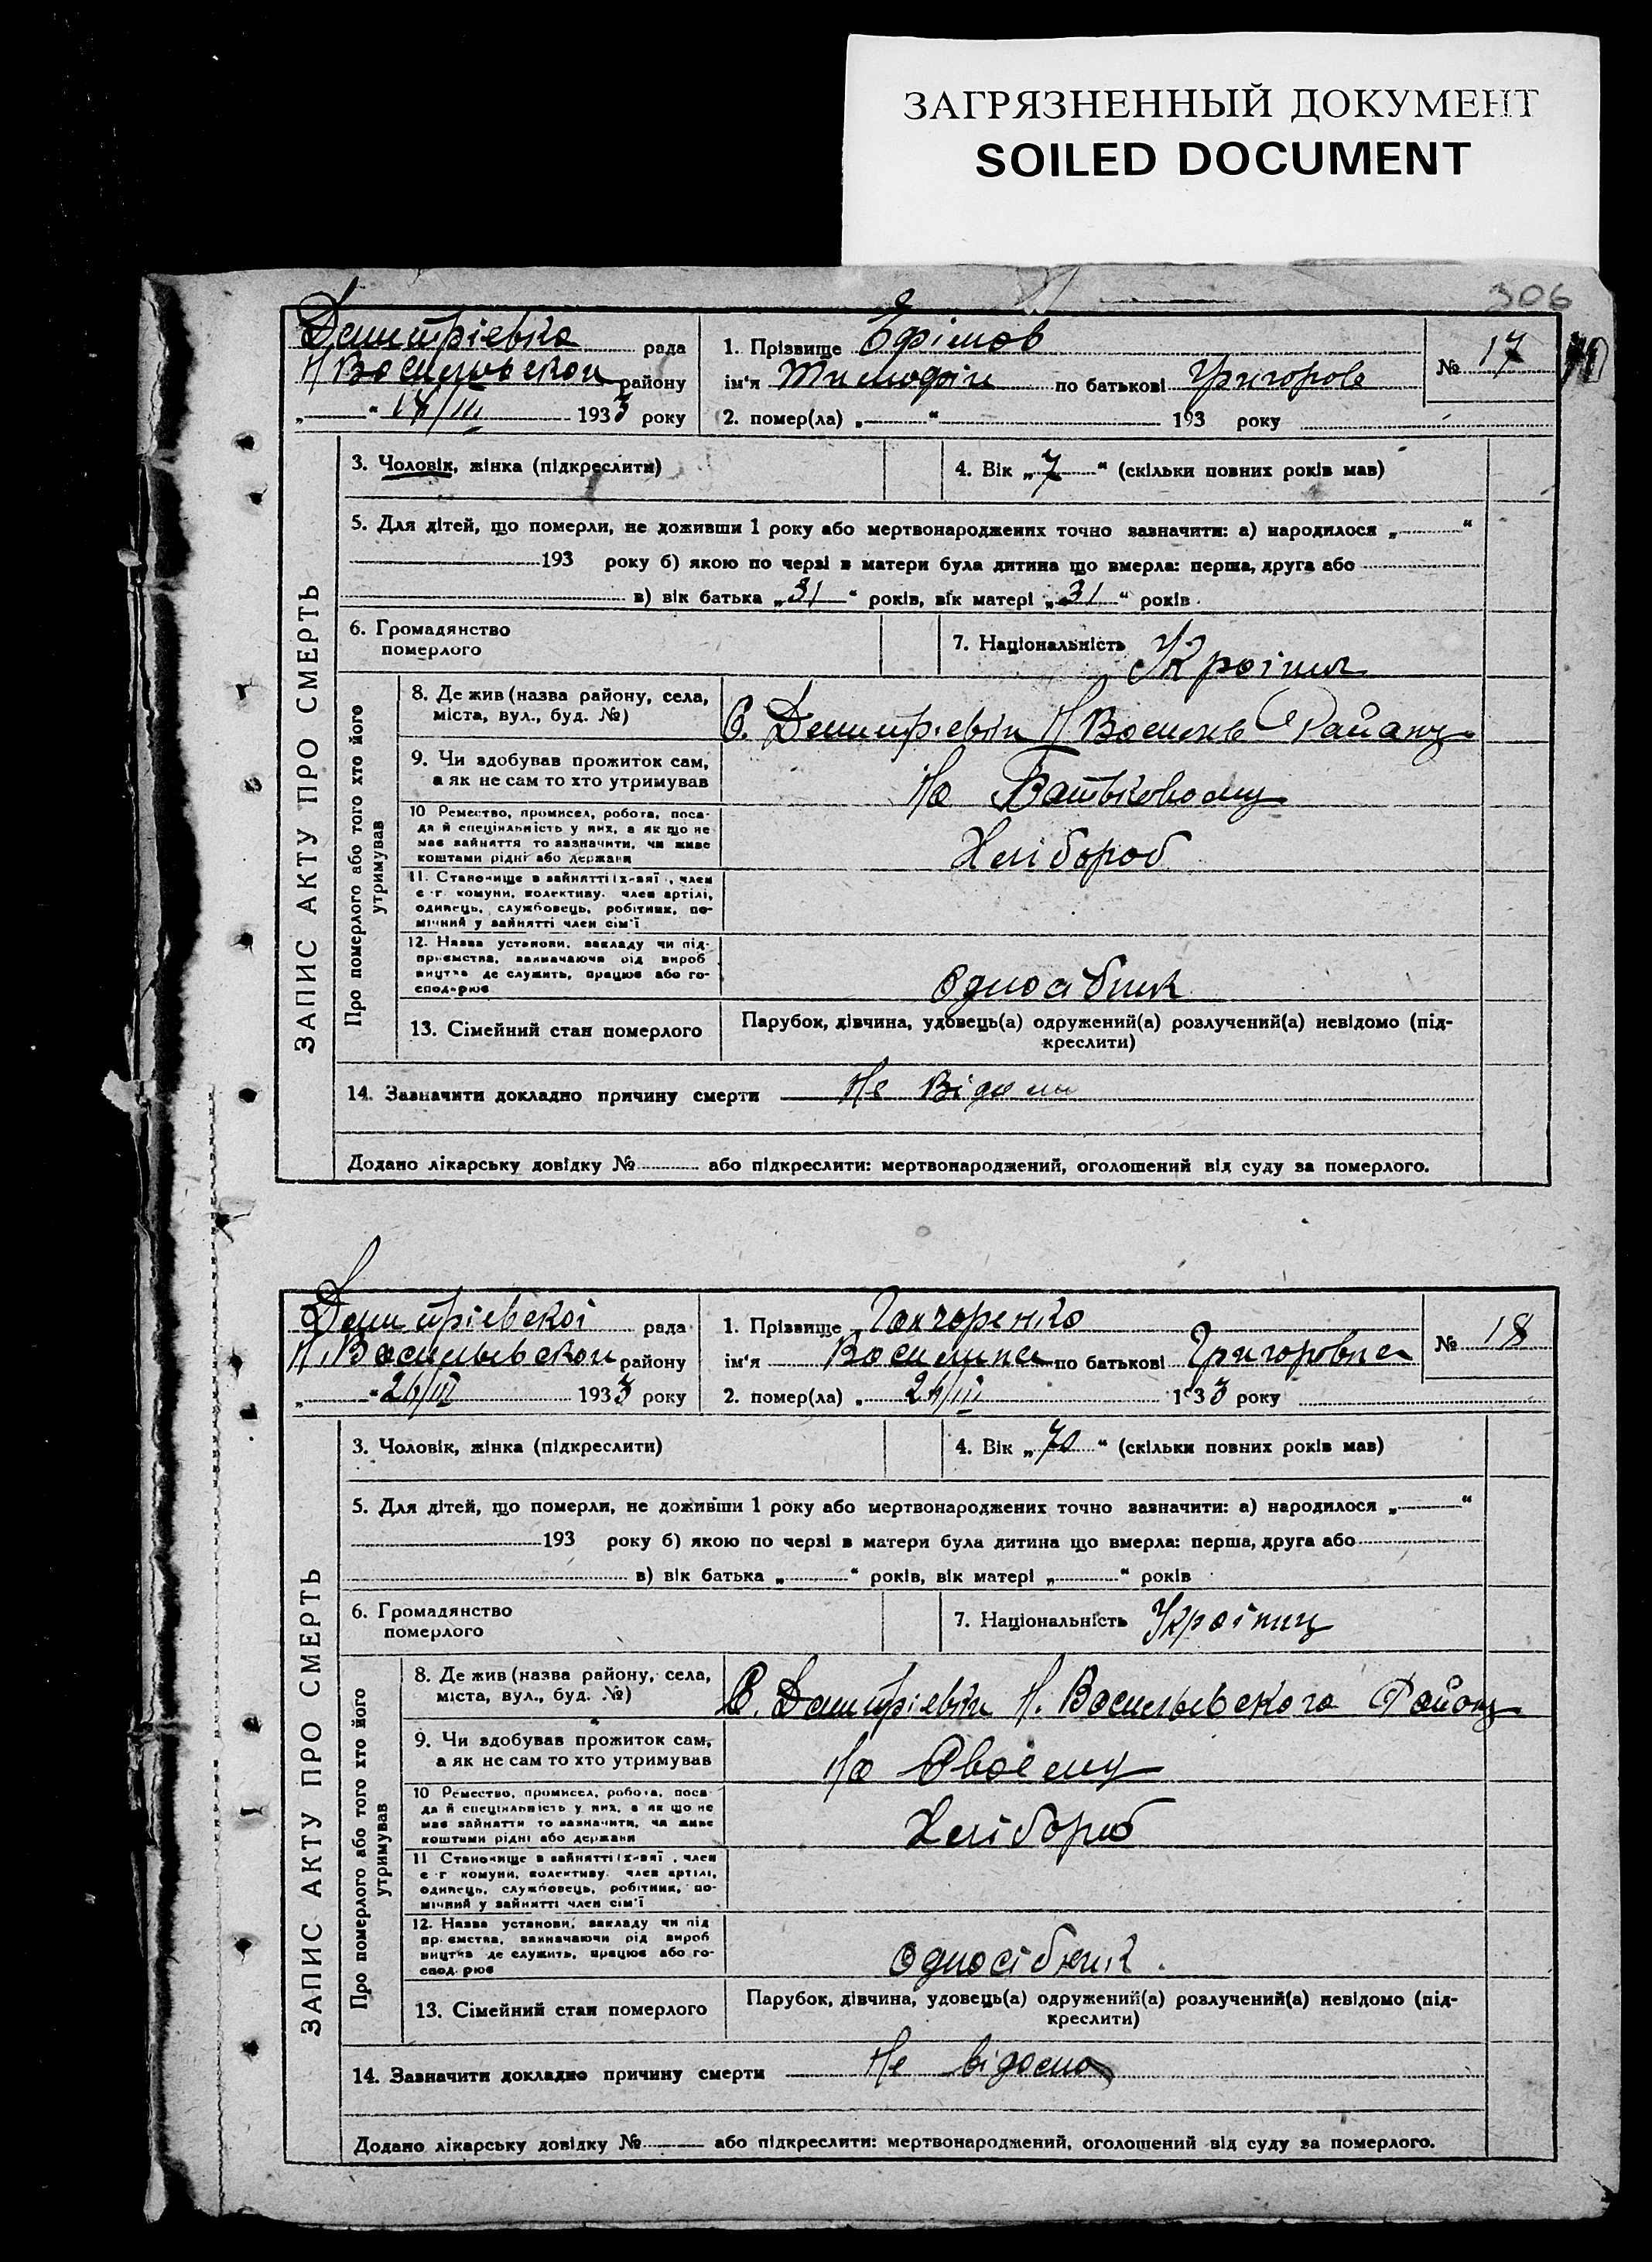 ЗАГРЯЗНЕННЫЙ ДОКУМЕНТ
SOILED DOCUMENT
306
Дмитрієвка рада
Н Васильвской району
„ “ 17/III 1933 року
1. Прізвище Єфімов
ім'я Тимофій по батькові Григоров
2. помер(ла) „ “ 193 року
№ 17
ЗАПИС АКТУ ПРО СМЕРТЬ
3. Чоловік, жінка (підкреслити)
4. Вік „7“ (скільки повних років мав)
5. Для дітей, що померли, не доживши 1 року або мертвонароджених точно зазначити: а) народилося „ “
193 року б) якою по черзі в матери була дитина що вмерла: перша, друга або
в) вік батька „31“ років, вік матері „31“ років
6. Громадянство
померлого
7. Національність Україн
Про померлого або того хто його
утримував
8. Де жив (назва району, села,
міста, вул., буд. №)
С. Дмитрієвка Н Василів Району
9. Чи здобував прожиток сам,
а як не сам то хто утримував
На Батьковому
10 Ремество, промисел, робота, поса-
да й спеціяльність у них, а як що не
має зайняття то зазначити, чи живе
коштами рідні або держави
Хлібороб
11. Становище в зайнятті (х-вяї, член
с-г комуни, колективу, член артілі,
одинець, службовець, робітник, по-
мічний у зайнятті член сім'ї
12. Назва установи, закладу чи під-
приємства, зазначаючи рід вироб
ництва де служить, працює або го-
сподарює
Односібник
13. Сімейний стан померлого
Парубок, дівчина, удовець(а) одружений(а) розлучений(а) невідомо (під-
креслити)
14. Зазначити докладно причину смерти Не Відомо
Додано лікарську довідку № або підкреслити: мертвонароджений, оголошений від суду за померлого.
Дмитрієвскої рада
Н. Васильевской району
„ “ 24/III 1933 року
1. Прізвище Гончаренко
ім'я Василина по батькові Григоровна
2. помер(ла) „ 24/III 1933 року
№ 18
ЗАПИС АКТУ ПРО СМЕРТЬ
3. Чоловік, жінка (підкреслити)
4. Вік „70“ (скільки повних років мав)
5. Для дітей, що померли, не доживши 1 року або мертвонароджених точно зазначити: а) народилося „ “
193 року б) якою по черзі в матери була дитина що вмерла: перша, друга або
в) вік батька „ “ років, вік матері „ “ років
6. Громадянство
померлого
7. Національність Україну
Про померлого або того хто його
утримував
8. Де жив (назва району, села,
міста, вул., буд. №)
С. Дмитрієвка Н. Васильевского Району
9. Чи здобував прожиток сам,
а як не сам то хто утримував
На Своєму
10 Ремество, промисел, робота, поса-
да й спеціяльність у них, а як що не
має зайняття то зазначити, чи живе
коштами рідні або держави
Хлібороб
11 Становище в зайнятті (х-вяї, член
с-г комуни, колективу, член артілі,
одинець, службовець, робітник, по-
мічний у зайнятті член сім'ї
12. Назва установи, закладу чи під
приємства, зазначаючи рід вироб
ництва де служить, працює або го-
сподарює
Односібник
13. Сімейний стан померлого
Парубок, дівчина, удовець(а) одружений(а) розлучений(а) невідомо (під-
креслити)
14. Зазначити докладно причину смерти Не відомо
Додано лікарську довідку № або підкреслити: мертвонароджений, оголошений від суду за померлого.